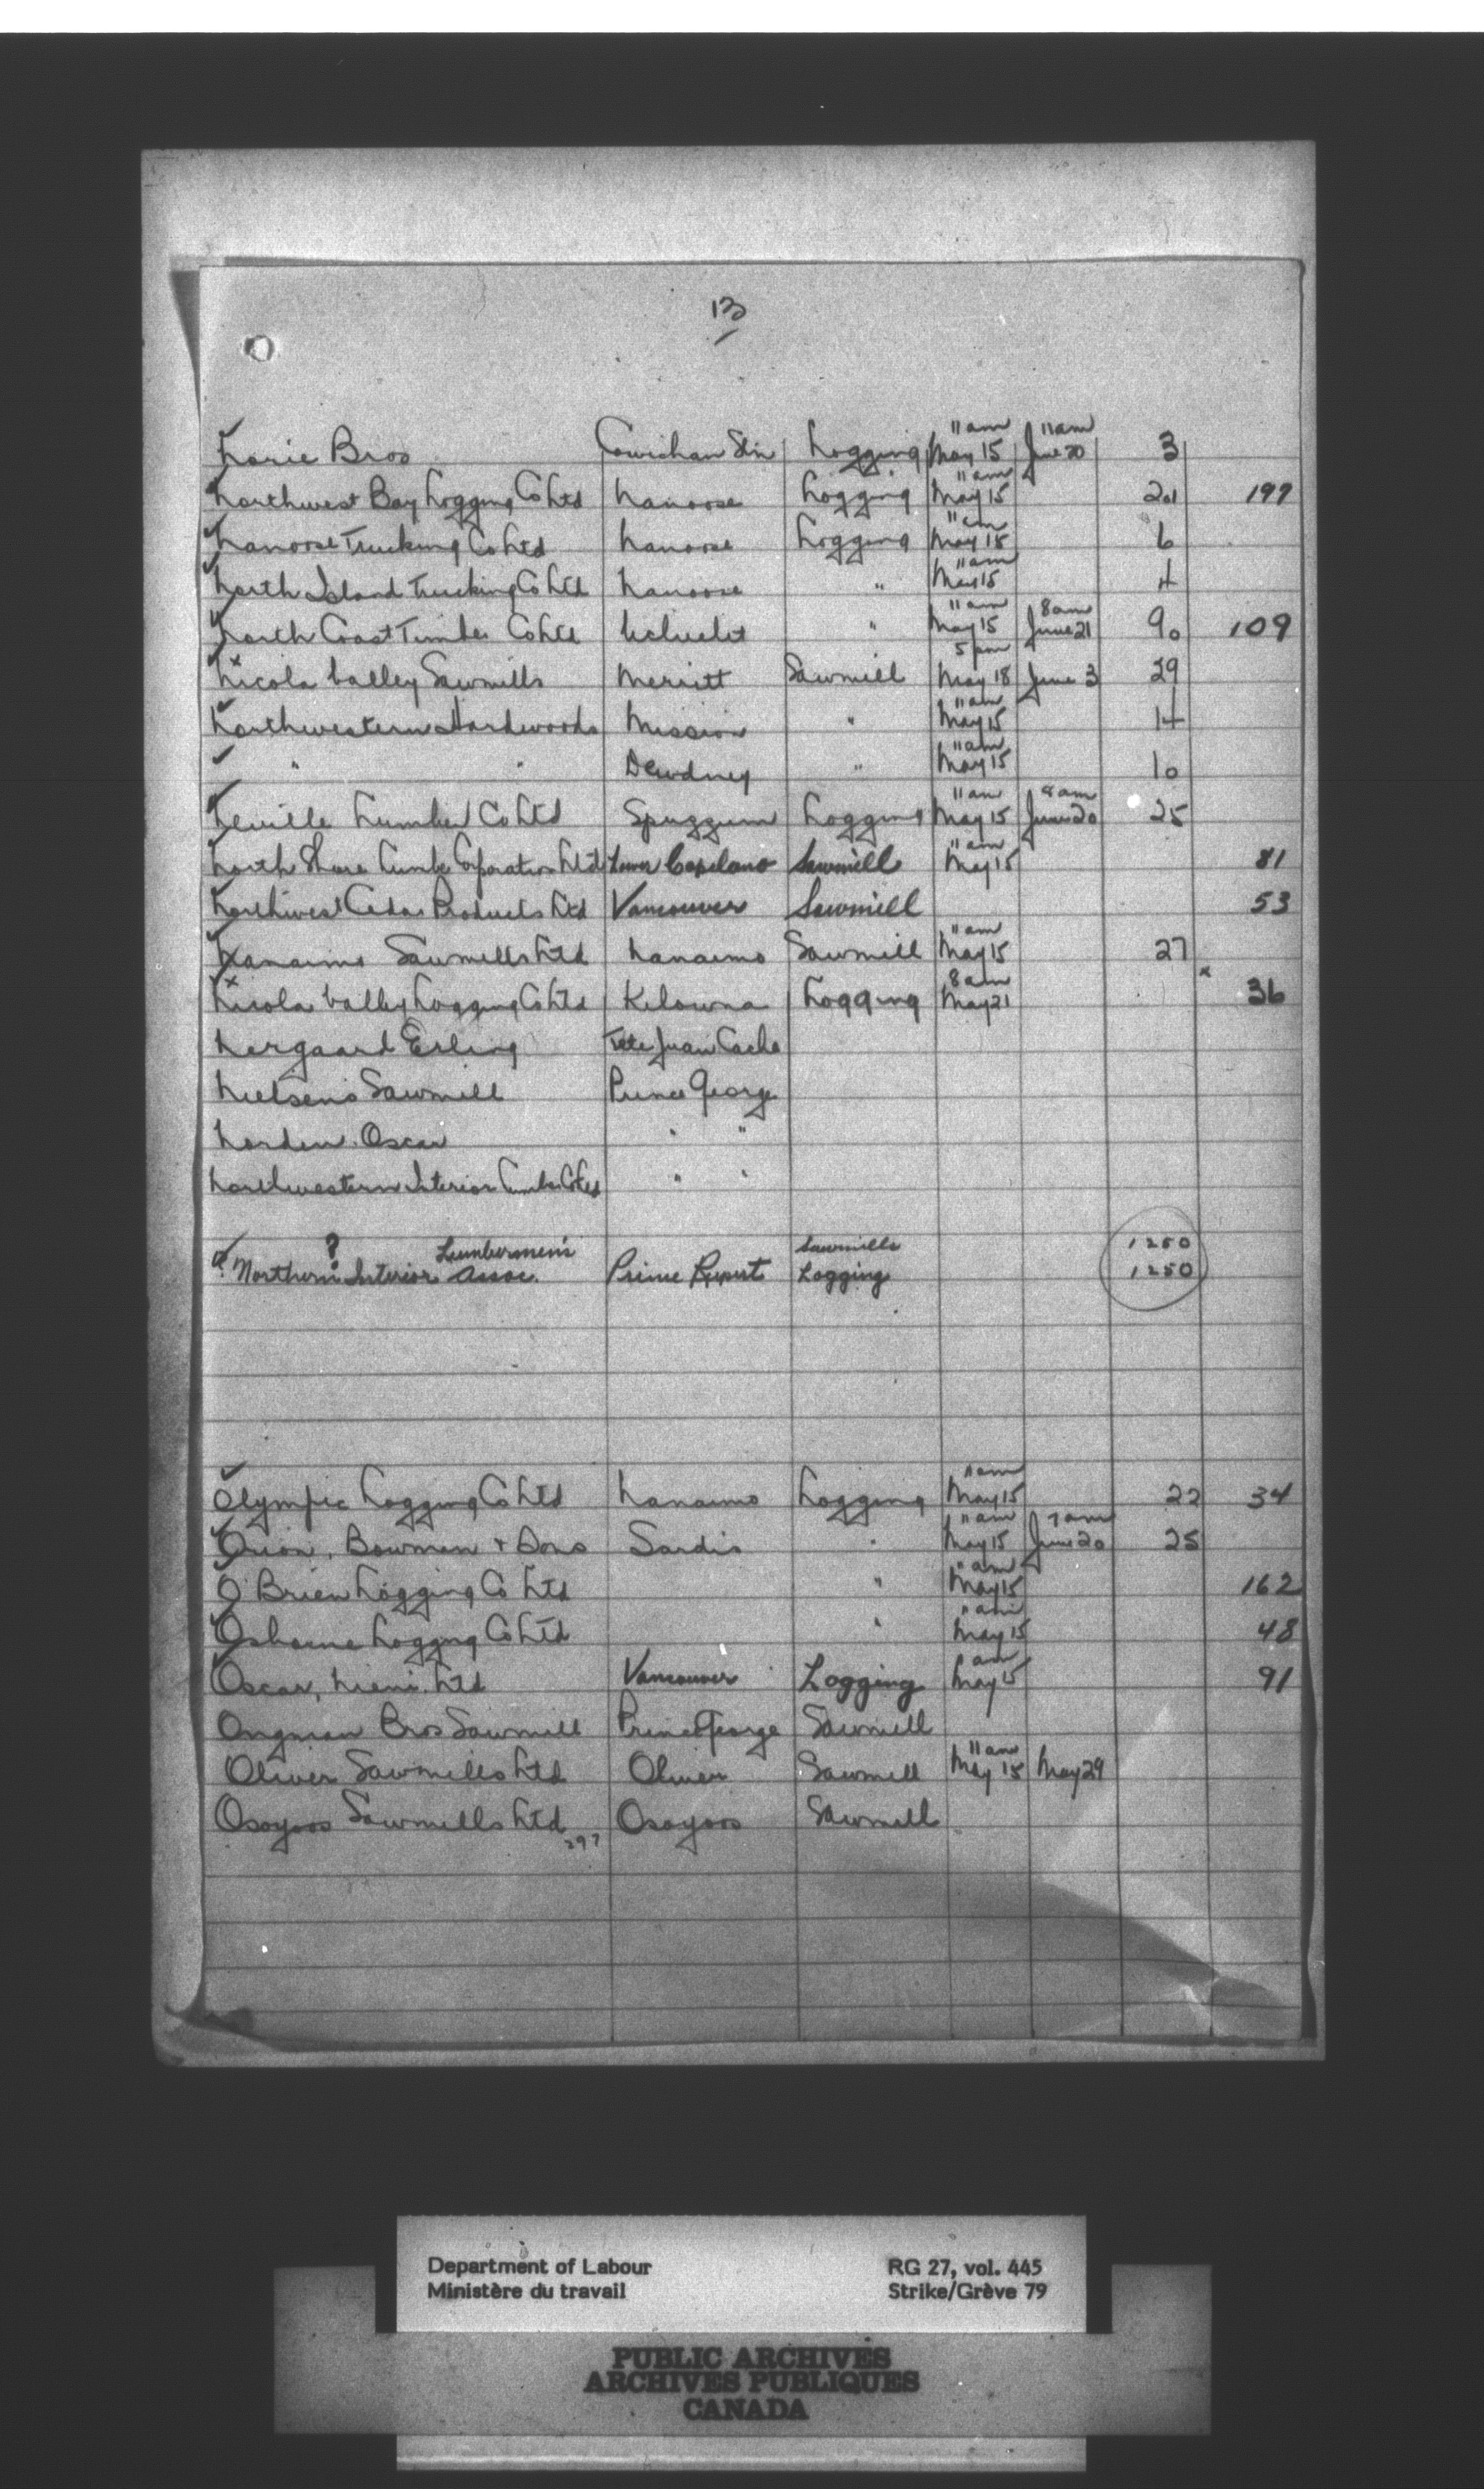 13
Narie Bros Cowichan Stn Logging 11am May 15 11am June 20 3
Northwest Bay Logging Co Ltd Nanoose Logging 11am May 15 201 199
Nanoose Trucking Co Ltd Nanoose Logging 11am May 15 6
North Island Trucking Co Ltd Nanoose " 11am May 15 4
North Coast Timber Co Ltd Ucluelet " 11am May 15 8am June 21 90 109
Nicola Valley Sawmills Merritt Sawmill 5pm May 18 June 3 29
Northwestern Hardwoods Mission " 11am May 15 14
" " Dewdney " 11am May 15 10
Neville Lumber Co Ltd Spuzzum Logging 11am May 15 8am June 20 25
North Shore Lumber Corporation Ltd Lower Capilano Sawmill 11am May 15 81
Northwest Cedar Products Ltd Vancouver Sawmill 53
Nanaimo Sawmills Ltd Nanaimo Sawmill 11am May 15 27
Nicola Valley Logging Co Ltd Kelowna Logging 8am May 21 x 36
Nergaard Erling Tete Juan Cache
Nielsens Sawmill Prince George
Norden Oscar " "
Northwestern Interior Lumber Co Ltd " "
? Lumbermen's Sawmills 1250
Northern Interior Assoc. Prince Rupert Logging 1250
Olympic Logging Co Ltd Nanaimo Logging 11am May 15 22 34
Orion, Bowman & Sons Sardis " 11am May 15 7am June 20 25
O'Brien Logging Co Ltd " 11am May 15 162
Osborne Logging Co Ltd " 11am May 15 48
Oscar, Niemi Ltd Vancouver Logging am May 15 91
Ongman Bros Sawmill Prince George Sawmill
Oliver Sawmills Ltd Oliver Sawmill 11am May 15 May 29
Osoyoos Sawmills Ltd Osoyoos Sawmill
297
Department of Labour RG 27, vol. 445
Ministère du travail Strike/Grève 79
PUBLIC ARCHIVES
ARCHIVES PUBLIQUES
CANADA